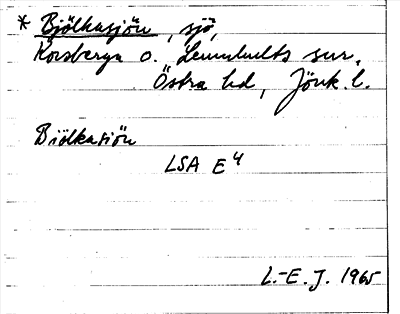 * Bjölkasjön, sjö,
Korsberga o. Lemnhults snr,
Östra hd, Jönk. l.
Biölkasiön
LSA E4
L.-E. J. 1965